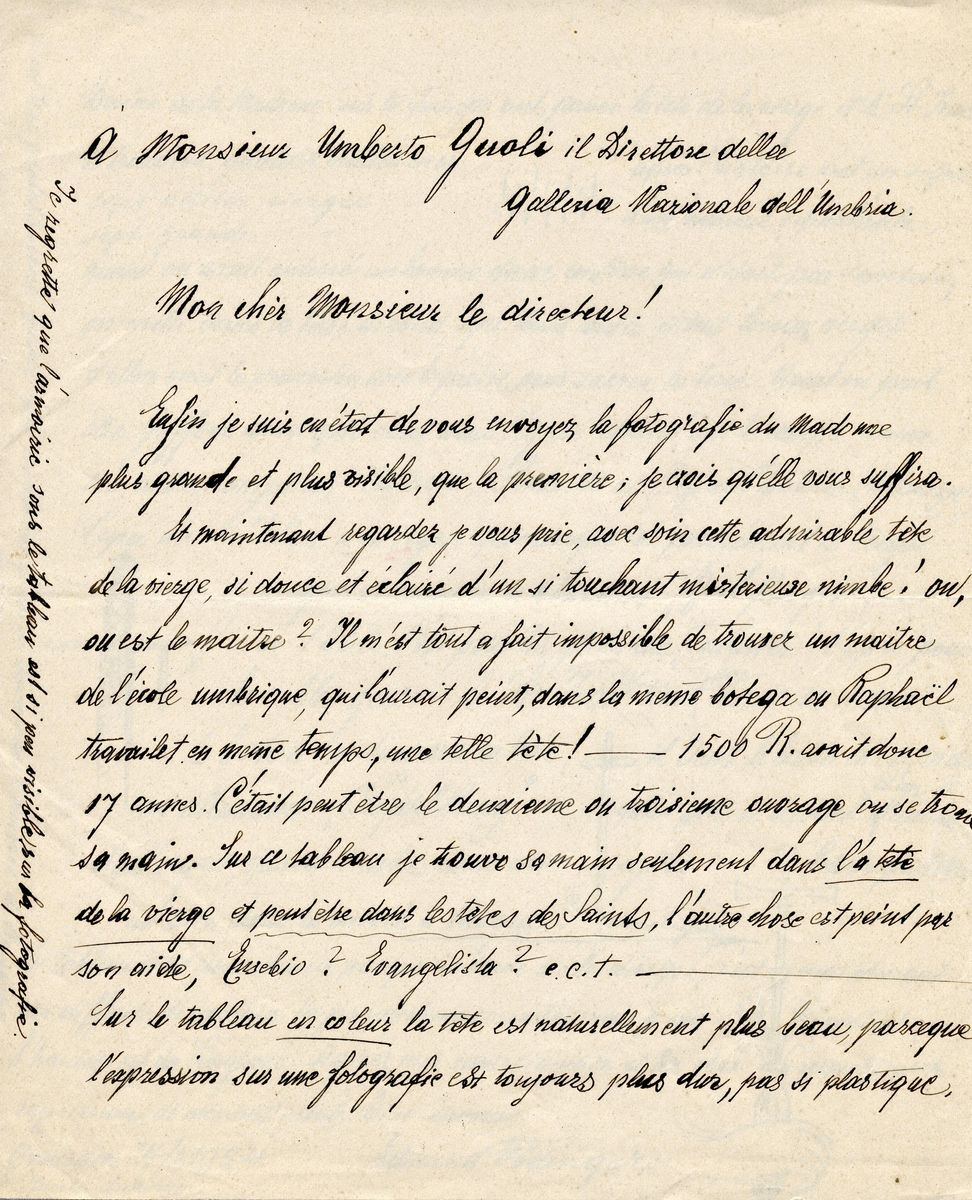 A Monsieur Umberto Gnoli il Direttore della
Galleria Nazionale dell'Umbria.
Mon chèr Monsieur le directeur!
Enfin je suis en état de vous envoyez la fotografie du Madonne
plus grande et plus visible, que la première; je crois qu'élle vous suffira.
Et maintenant regardez je vous prie, avec soin cette admirable tète
de la vierge, si douce et éclairé d'un si touchant misterieuse nimbe! ou,
ou est le maitre? Il m'est tout a fait impossible de trouver un maitre
de l'école umbrique, qui l'aurait peint, dans la meme botega ou Raphaël
travailet en meme temps, une telle tète! — 1500 R. avait donc
17 annes. C'était peut ètre le deuxieme ou troisieme ouvrage ou se trouve
sa main. Sur ce tableau je trouve sa main seulement dans l'a tetè
de la vierge et peut ètre dans les tètes des Saints, l'autre chose est peint par
son aide, Eusebio? Evangelista? e.c.t. —
Sur le tableau en coleur la tète est naturellement plus beau, parceque
l'expression sur une fotografie est toujours plus dur, pas si plastique.
Je regrette que l'armoirie sous le tableau est si peu visible sur la fotografie.